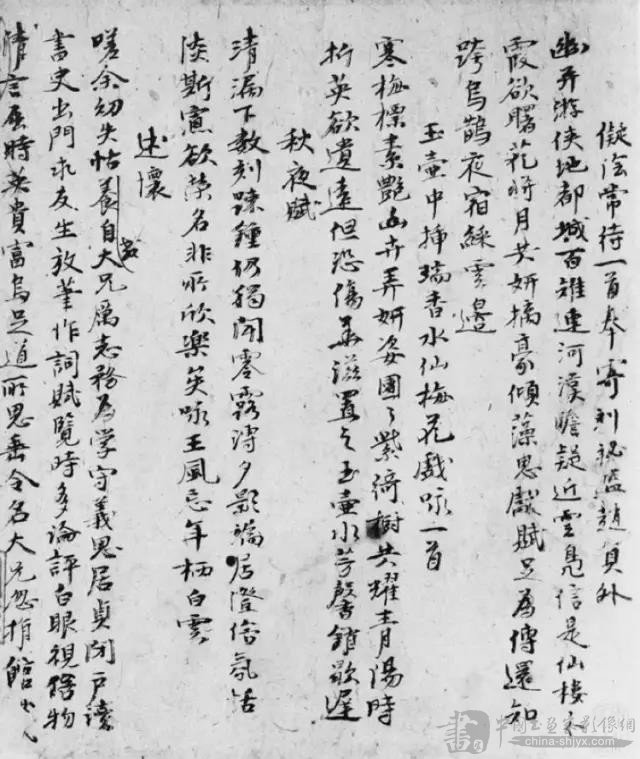 擬陰常侍一首奉寄劉秘監趙員外
幽并游俠地都城百雉連河漢瞻疑近雲鳧信是仙樓
霞欲曙花將月共妍摛豪傾藻思獻賦足為傳還知
跨烏鵲夜宿綵雲邊
玉壺中插瑞香水仙梅花戲咏一首
寒梅標素艷幽卉弄妍姿團團紫綺樹共耀青陽時
折英欲遺遠但恐傷華滋置之玉壺水芳馨銷歇遲
秋夜賦
清漏下數刻疎鐘仍獨聞零露溥夕影端居澄俗氛
淡斯慮欲榮名非所欣樂矣咏王風忘年栖白雲
述懷
嗟余幼失怙養自大兄為志務為學守義思居貞閉戶讀
書史出門求友生放筆作詞賦覽時多論評白眼視俗物
清言屈時英貴富烏足道所思垂令名大兄忽捐館
中国书画家影像网
china-shjyx.com